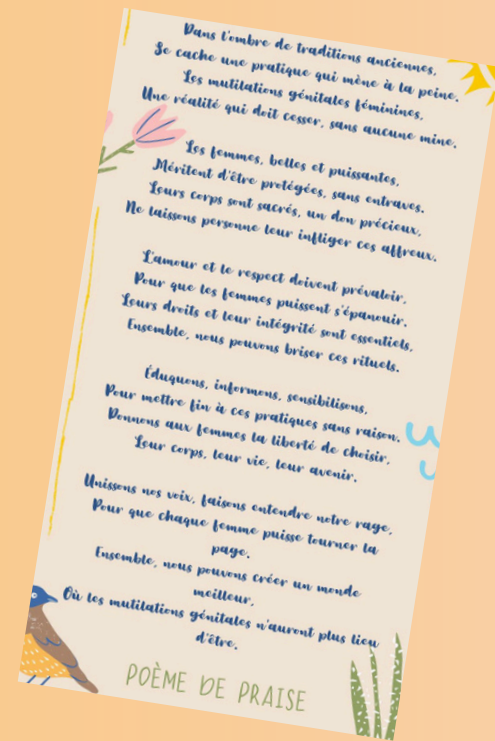 Dans l'ombre de traditions anciennes,
Se cache une pratique qui mène à la peine.
Les mutilations génitales féminines,
Une réalité qui doit cesser, sans aucune mine.
Les femmes, belles et puissantes,
Méritent d'être protégées, sans entraves.
Leurs corps sont sacrés, un don précieux,
Ne laissons personne leur infliger ces affreux.
L'amour et le respect doivent prévaloir,
Pour que les femmes puissent s'épanouir.
Leurs droits et leur intégrité sont essentiels,
Ensemble, nous pouvons briser ces rituels.
Éduquons, informons, sensibilisons,
Pour mettre fin à ces pratiques sans raison.
Donnons aux femmes la liberté de choisir,
Leur corps, leur vie, leur avenir.
Unissons nos voix, faisons entendre notre rage,
Pour que chaque femme puisse tourner la
page.
Ensemble, nous pouvons créer un monde
meilleur,
Où les mutilations génitales n'auront plus lieu
d'être.
POÈME DE PRAISE